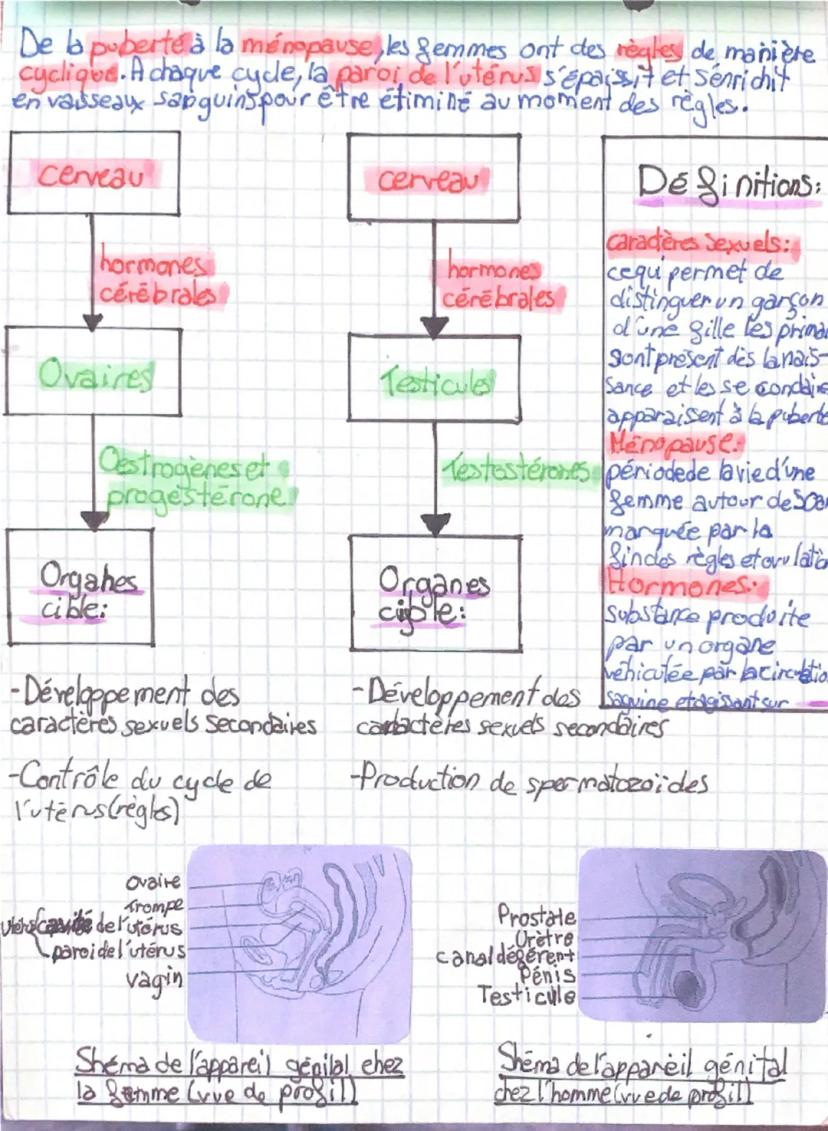 De la puberté à la ménopause, les femmes ont des règles de manière
cyclique. A chaque cycle, la paroi de l'utérus s'épaissit et s'énrichit
en vaisseaux sanguins pour être étiminé au moment des règles.
cerveau
hormones
cérébrales
Ovaires
Oestrogènes et
progestérone
Organes
cible:
-Développement des
caractères sexuels secondaires
-Contrôle du cycle de
l'utérus (règles)
cerveau
hormones
cérébrales
Testicules
Testostérones
Organes
cible:
-Développement des
caractères sexuels secondaires
-Production de spermatozoïdes
Définitions:
caractères sexuels:
ce qui permet de
distinguer un garçon
d'une fille les primai
sont présent dès la nais-
sance et les secondaire
apparaisent à la puberté
Ménopause:
période de la vie d'une
femme autour de 50an
marquée par la
fin des règles et ovulatio
Hormones:
substance produite
par un organe
véhiculée par la circulatio
saguine et agisant sur
Ovaire
Trompe
utérus cavité de l'utérus
paroi de l'utérus
vagin
Shéma de l'appareil génital chez
la femme (vue de profil)
Prostate
Urètre
canal déférent
Pénis
Testicule
Shéma de l'appareil génital
chez l'homme (vue de profil)